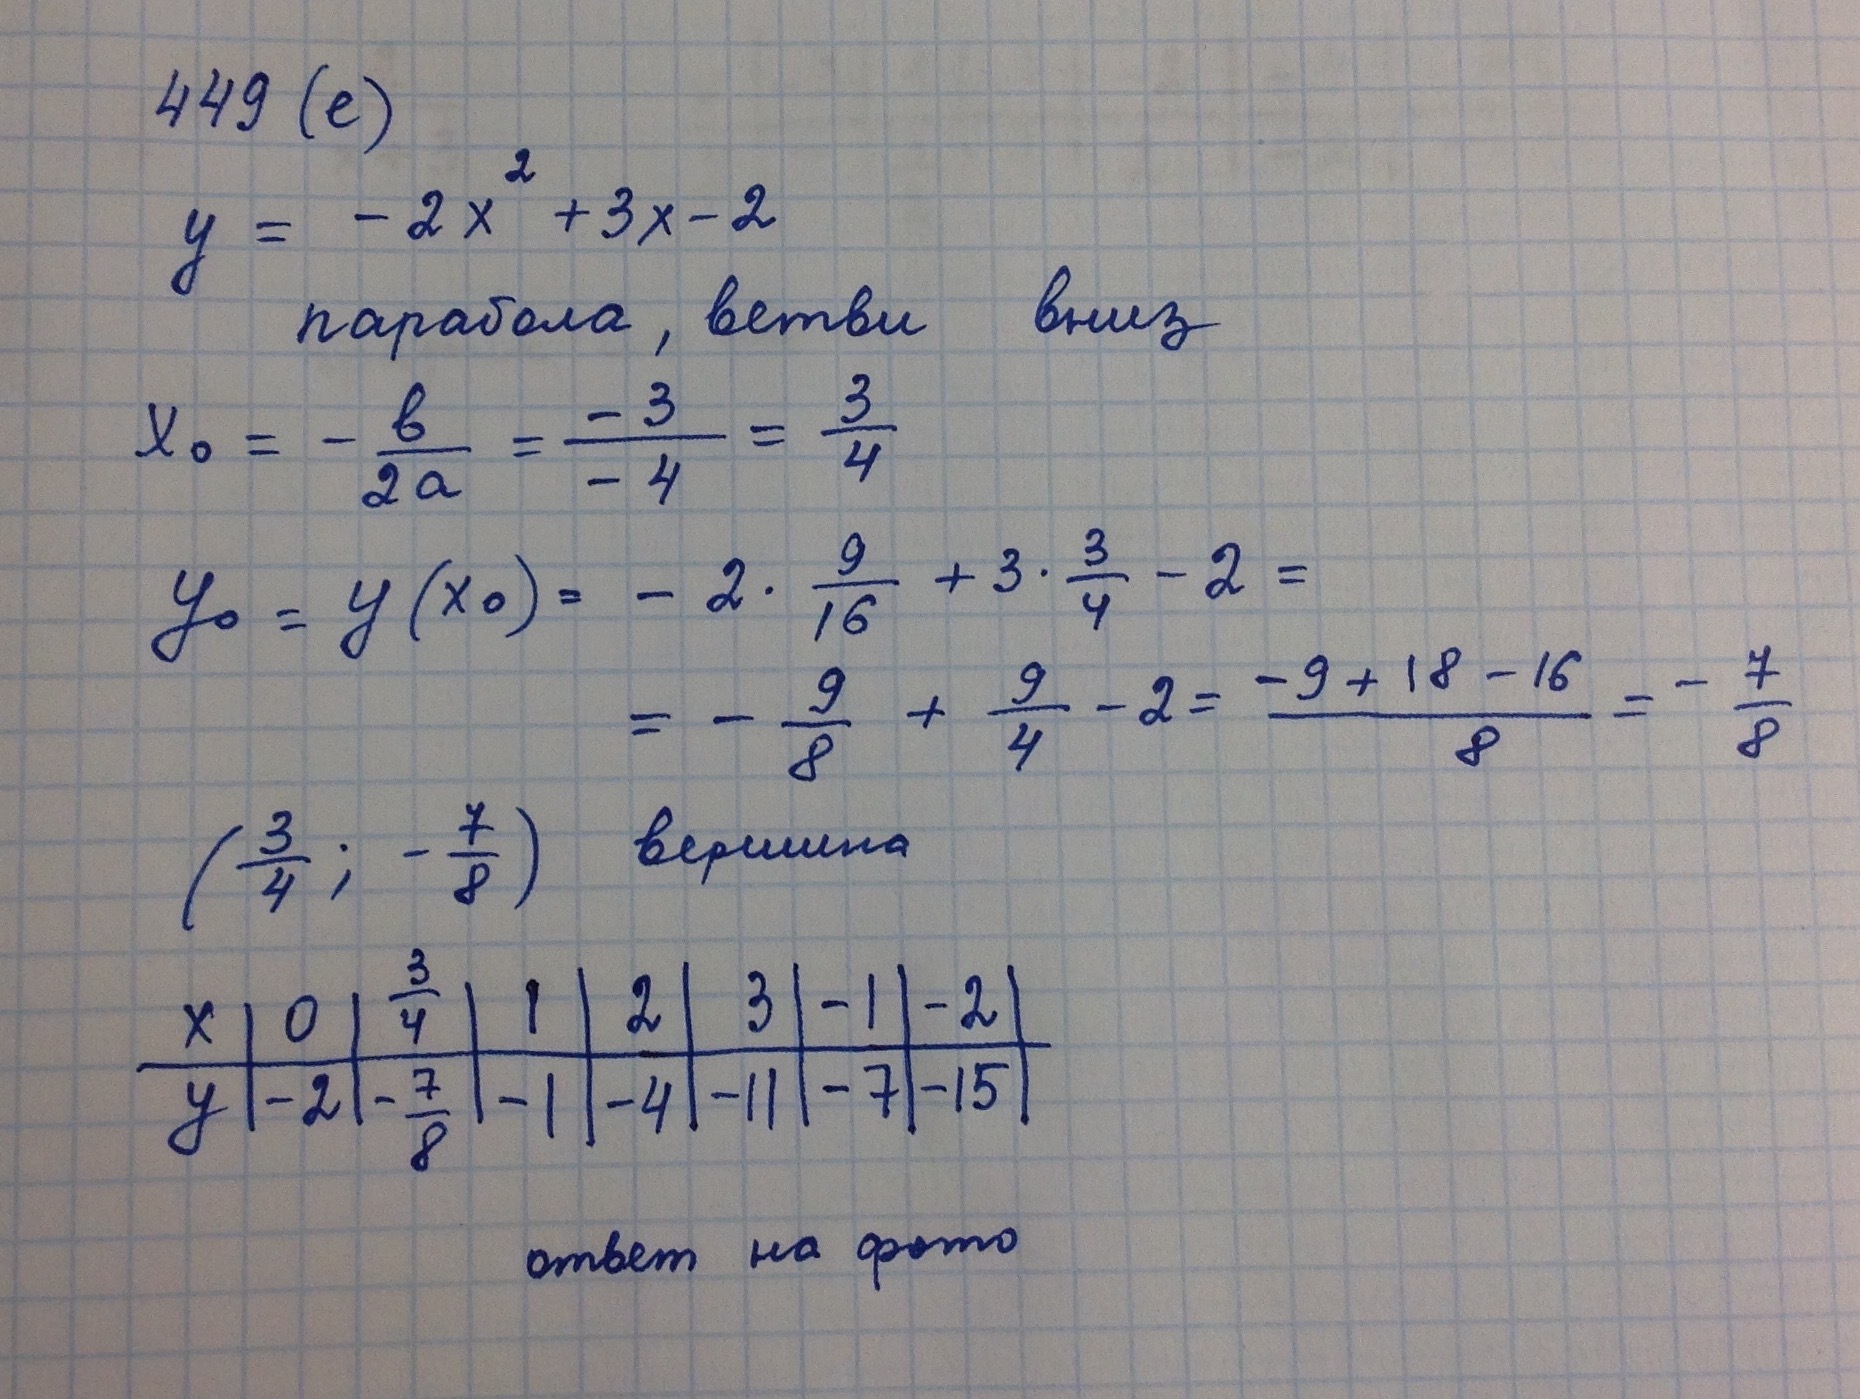 449 (е)
y = -2x² + 3x - 2
парабола, ветви вниз
x₀ = - в/2a = -3/-4 = 3/4
y₀ = y(x₀) = -2 · 9/16 + 3 · 3/4 - 2 =
= - 9/8 + 9/4 - 2 = (-9 + 18 - 16)/8 = - 7/8
(3/4; - 7/8) вершина
x | 0 | 3/4 | 1 | 2 | 3 | -1 | -2 |
y | -2 | -7/8 | -1 | -4 | -11 | -7 | -15 |
ответ на фото